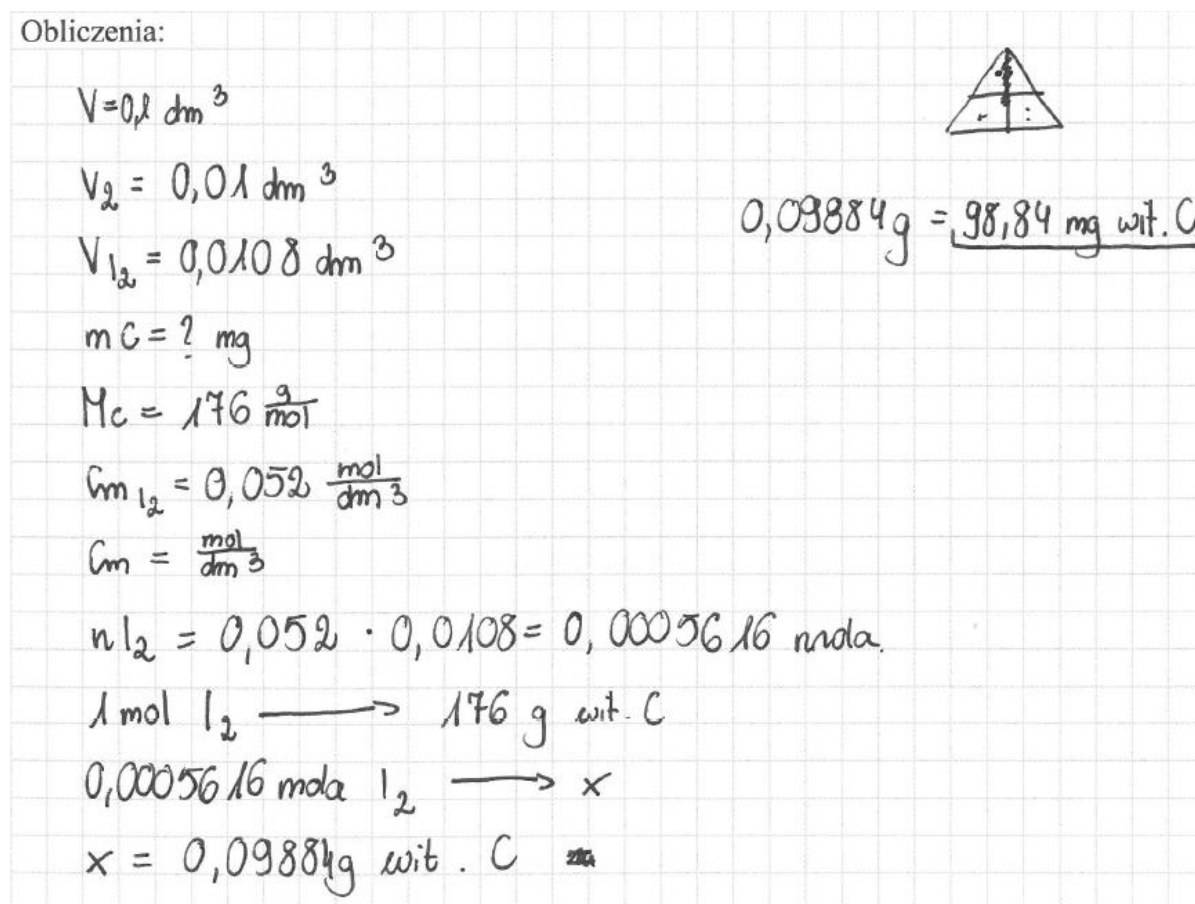 Obliczenia:
V=0,1 dm³
V₂ = 0,01 dm³
V I₂ = 0,0108 dm³
m C = ? mg
Mc = 176 g/mol
Cm I₂ = 0,052 mol/dm³
Cm = mol/dm³
n I₂ = 0,052 · 0,0108 = 0,0005616 mola.
1 mol I₂ → 176 g wit. C
0,0005616 mola I₂ → x
x = 0,09884g wit. C
0,09884g = 98,84 mg wit. C